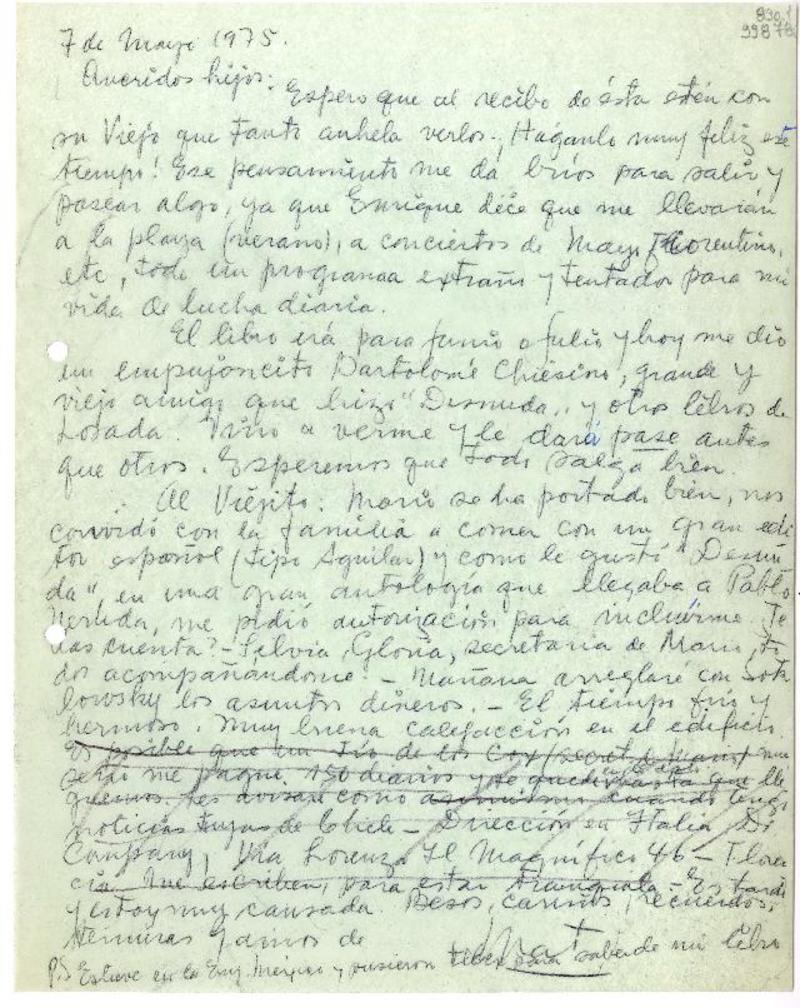 830.1
99878
7 de Mayo 1975.
Queridos hijos:
Espero que al recibo de ésta estén con
su Viejo que tanto anhela verlos. ¡Háganlo muy feliz este
tiempo! Ese pensamiento me da bríos para salir y
pasear algo, ya que Enrique dice que me llevarán
a la playa (verano), a conciertos de Mayo Florentino,
etc, todo un programa extraño y tentador para mi
vida de lucha diaria.
El libro irá para junio o julio y hoy me dio
un empujoncito Bartolomé Chiesino, grande y
viejo amigo que hizo "Desnuda" y otros libros de
Losada. Vino a verme y le dará pase antes
que otros. Esperemos que todo salga bien.
Al Viejito: Mario se ha portado bien, nos
convidó con la familia a comer con un gran edi
tor español (tipo Aguilar) y como le gustó "Desnu
da", en una gran antología que llegaba a Pablo
Neruda, me pidió autorización para incluirme. Te
das cuenta? - Silvia, Gloria, secretaria de Mario, to
dos acompañándome. - Mañana arreglaré con
lowsky los asuntos dineros. - El tiempo frío y
hermoso. Muy buena calefacción en el edificio.
Es posible que un tío de los Cox (secret. de Mario)
me pague 150 diarios y se quede hasta que lle
guemos. Les avisaré como asimismo cuando tenga
noticias tuyas de Chile - Dirección en Italia Di
Company, Vía Lorenzo Il Magnífico 46 - Floren
cia. Que escriben, para estar tranquila. - Es tarde
y estoy muy cansada. Besos, cariños, recuerdos,
ternuras y amos de
P.S Estuve en la Emb. México y pusieron telex para saber de mi libro